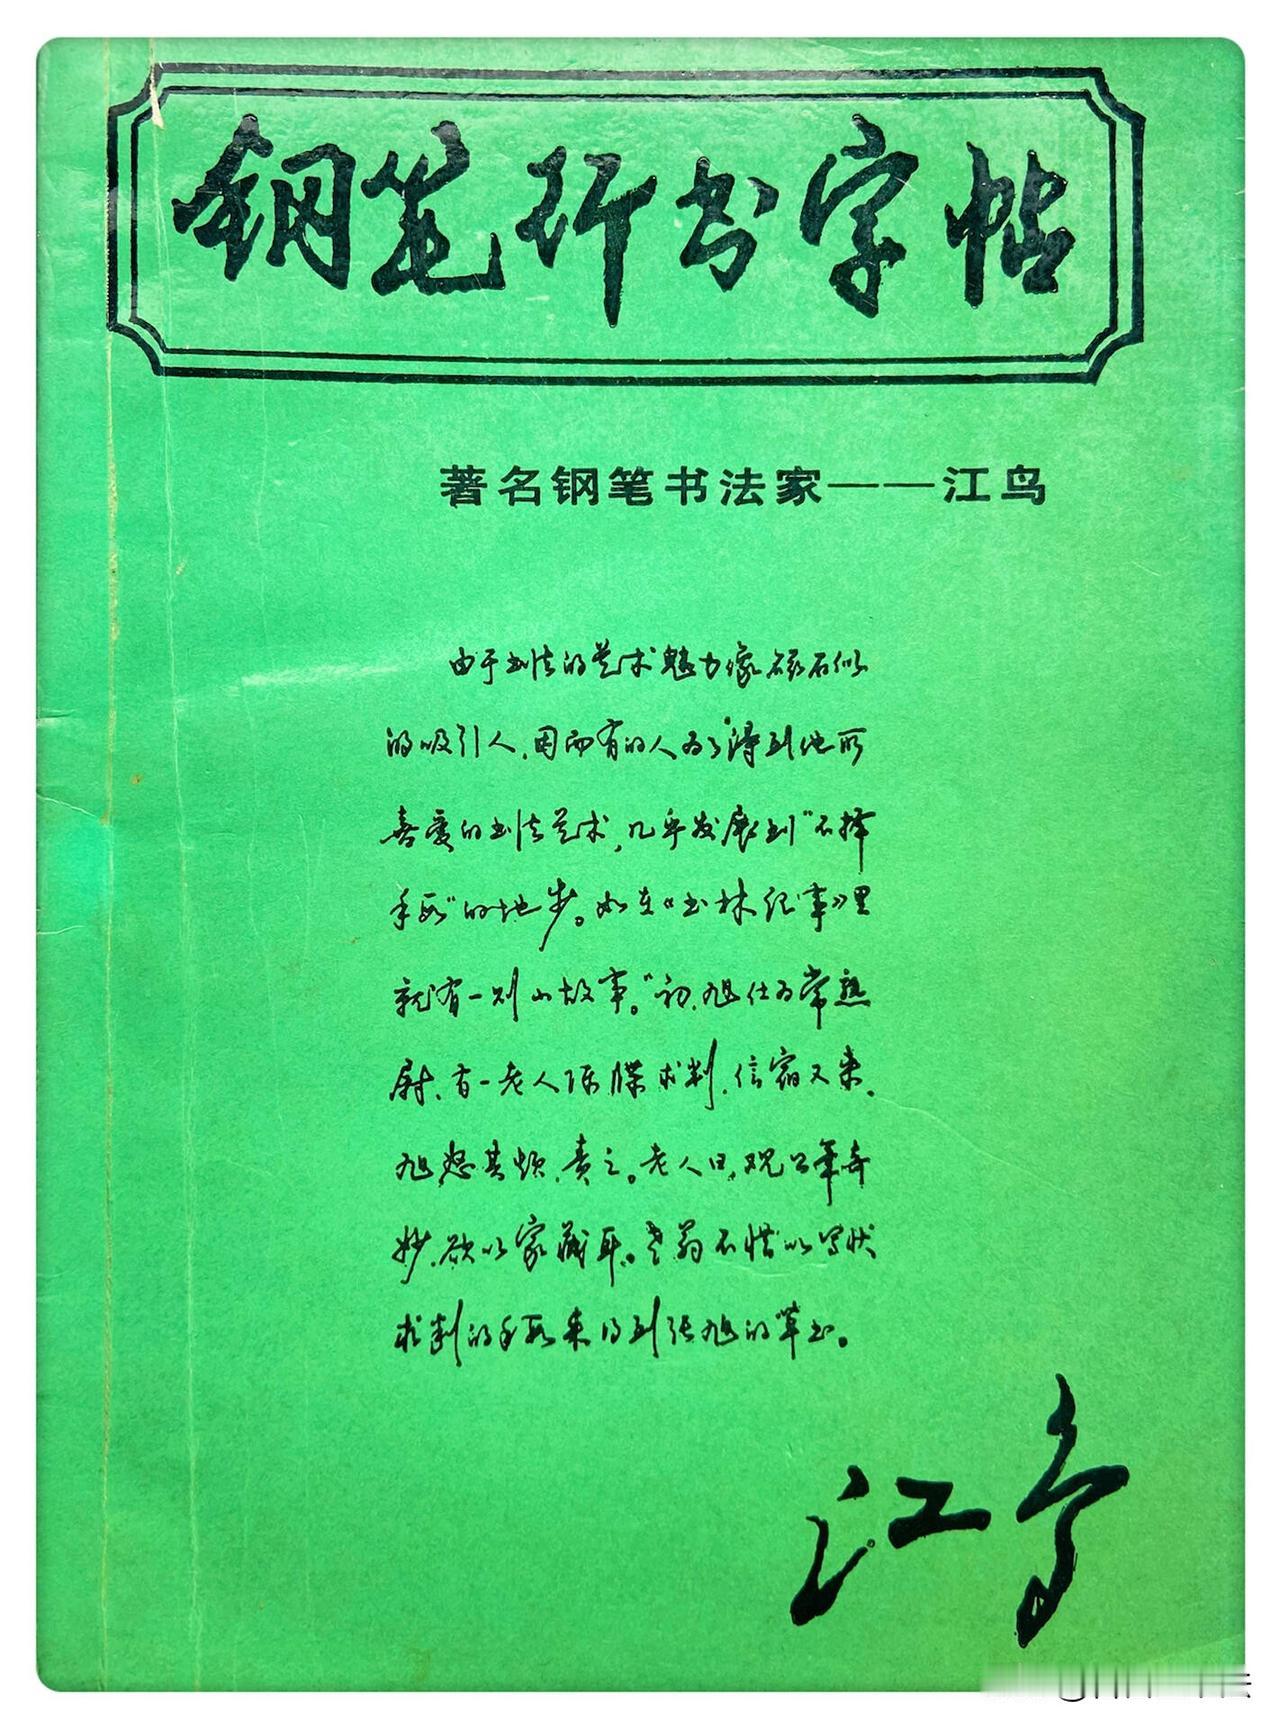 钢笔行书字帖
著名钢笔书法家——江鸟
由于书法的艺术魅力像磁石似
的吸引人，因而有的人为了得到他所
喜爱的书法艺术，几乎发展到“不择
手段”的地步。如在《书林纪事》里
就有一则小故事。“初，旭仕为常熟
尉，有一老人陈牒求判，信宿又来。
旭怒其烦，责之。老人曰，观公笔奇
妙，欲以家藏耳。老翁不惜以写状
求判的手段来得到张旭的草书。
江鸟